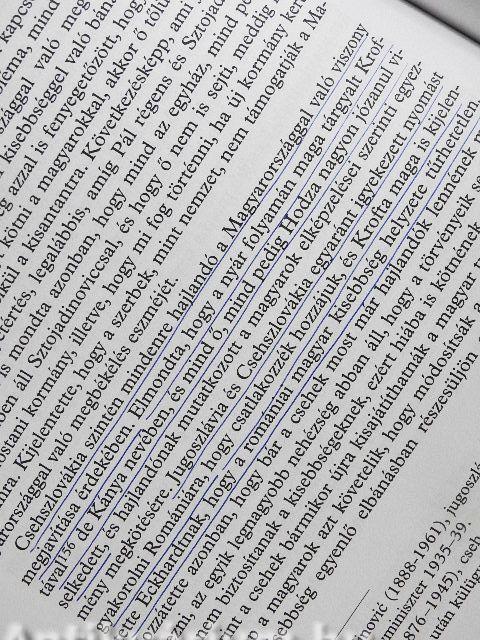 kapcso
téma, mind
szággal való meg
kisebbséggel való bán
g azzal is fenyegetőzött, hog
körni a magyarokkal, akkor ő tőlü
kül a kisantantra. Következésképp, ami
értés, legalábbis, amíg Pál régens és Sztojad
is mondta azonban, hogy mind az egyház, mind pe
ben áll Sztojadinoviccsal, és hogy ő nem is sejti, meddig
ostani kormány, illetve, hogy mi fog történni, ha új kormány ker
mra. Kijelentette, hogy a szerbek, mint nemzet, nem támogatják a Ma
arországgal való megbékélés eszméjét.
Csehszlovákia szintén mindenre hajlandó a Magyarországgal való viszony
megjavítása érdekében. Elmondta, hogy a nyár folyamán maga tárgyalt Krof-
tával¹⁵⁶ de Kánya nevében, és mind ő, mind pedig Hodza nagyon józanul vi-
selkedett, és hajlandónak mutatkozott a magyarok elképzelései szerinti egyez-
mény megkötésére. Jugoszlávia és Csehszlovákia egyaránt igyekezett nyomást
gyakorolni Romániára, hogy csatlakozzék hozzájuk, és Krofta maga is kijelen-
tte Eckhardtnak, hogy a romániai magyar kisebbség helyzete tűrhetetlen.
zzátette azonban, hogy bár a csehek most már hajlandók lennének
ni, az egyik legnagyobb nehézség abban áll, hogy a törvényeik se
m biztosítanak a kisebbségeknek, ezért hiába is körnének
nt a csehek bármikor újra kisajátíthatnák a magyar
a magyarok azt követelik, hogy módosítsák
ebbség egyenlő elbánásban részesüljön
nović (1888–1961), jugoszlá
miniszter 1935–39.
76–1945), cseh
tán külügy